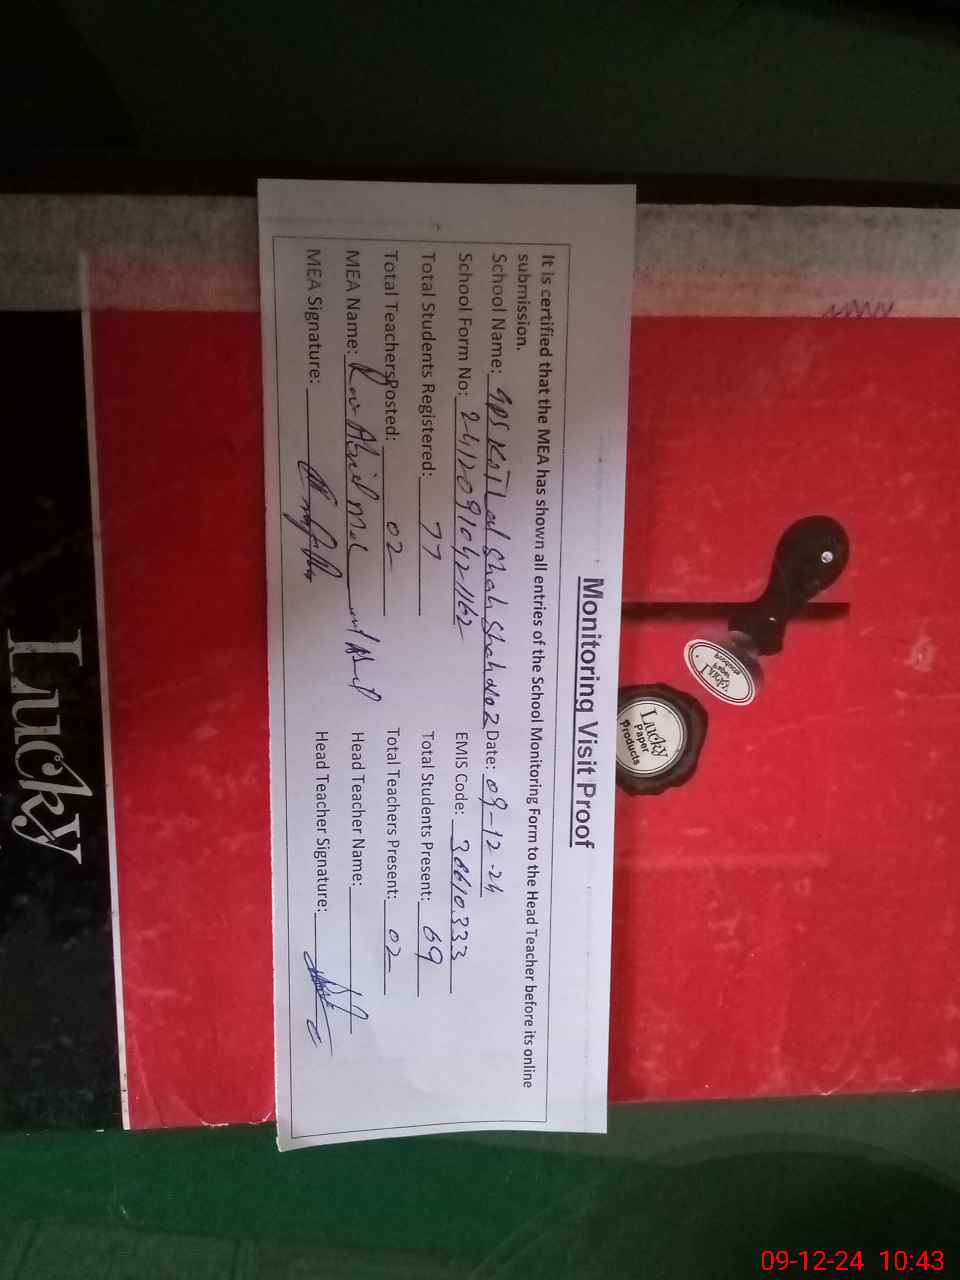 Monitoring Visit Proof
It is certified that the MEA has shown all entries of the School Monitoring Form to the Head Teacher before its online
submission.
School Name: GPS Kot Lal Shah Shah No 2 Date: 09-12-24
School Form No: 24120910421162 EMIS Code: 36610333
Total Students Registered: 77 Total Students Present: 69
Total TeachersPosted: 02 Total Teachers Present: 02
MEA Name: Rao Abid Head Teacher Name:
MEA Signature: Head Teacher Signature:
Lucky
Paper
Products
Lucky
09-12-24 10:43